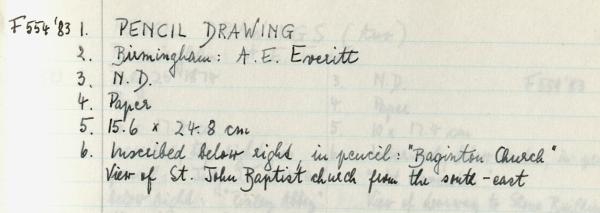 F554'83 1. PENCIL DRAWING
2. Birmingham: A.E. Everitt
3. N.D.
4. Paper
5. 15.6 x 24.8 cm
6. Inscribed below right, in pencil: "Baginton Church"
View of St. John Baptist church from the south-east